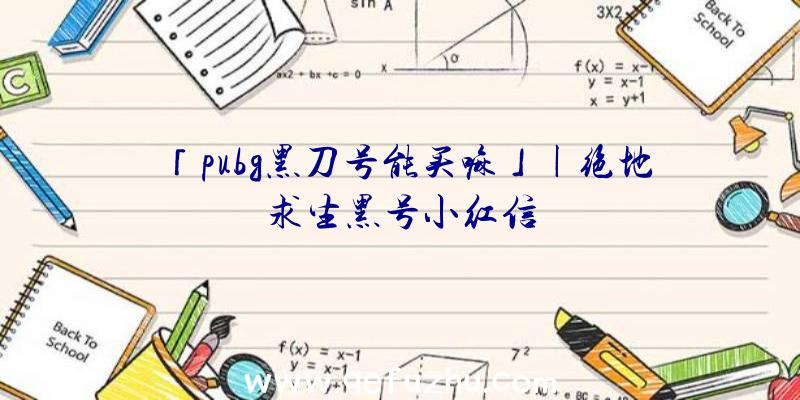 sin A
3X2
Back To
School
ax2 + bx + c = 0
x
α
f(x) = x-1
y = x-1
x = y+1
C
「pubg黑刀号能买嘛」|绝地
求生黑号小红信
Back To
School
f(x) = x-1
y = x-1
7²